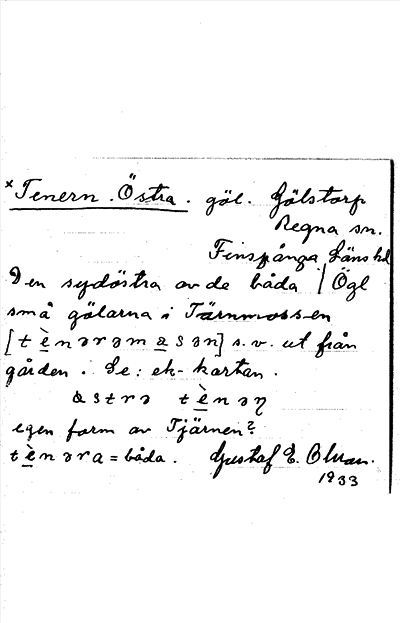 × Tenern. Östra. göl. Gölstorp
Regna sn.
Finspånga Läns hd
Den sydöstra av de båda / Ögl
små gölarna i Tärnmoss-en
[tènərəmasən] s.v. ut från
gården. Se: ek-kartan.
astrə tènəη
egen form av Tjärnen?
tènəra = båda. Gustaf E. Blman.
1933